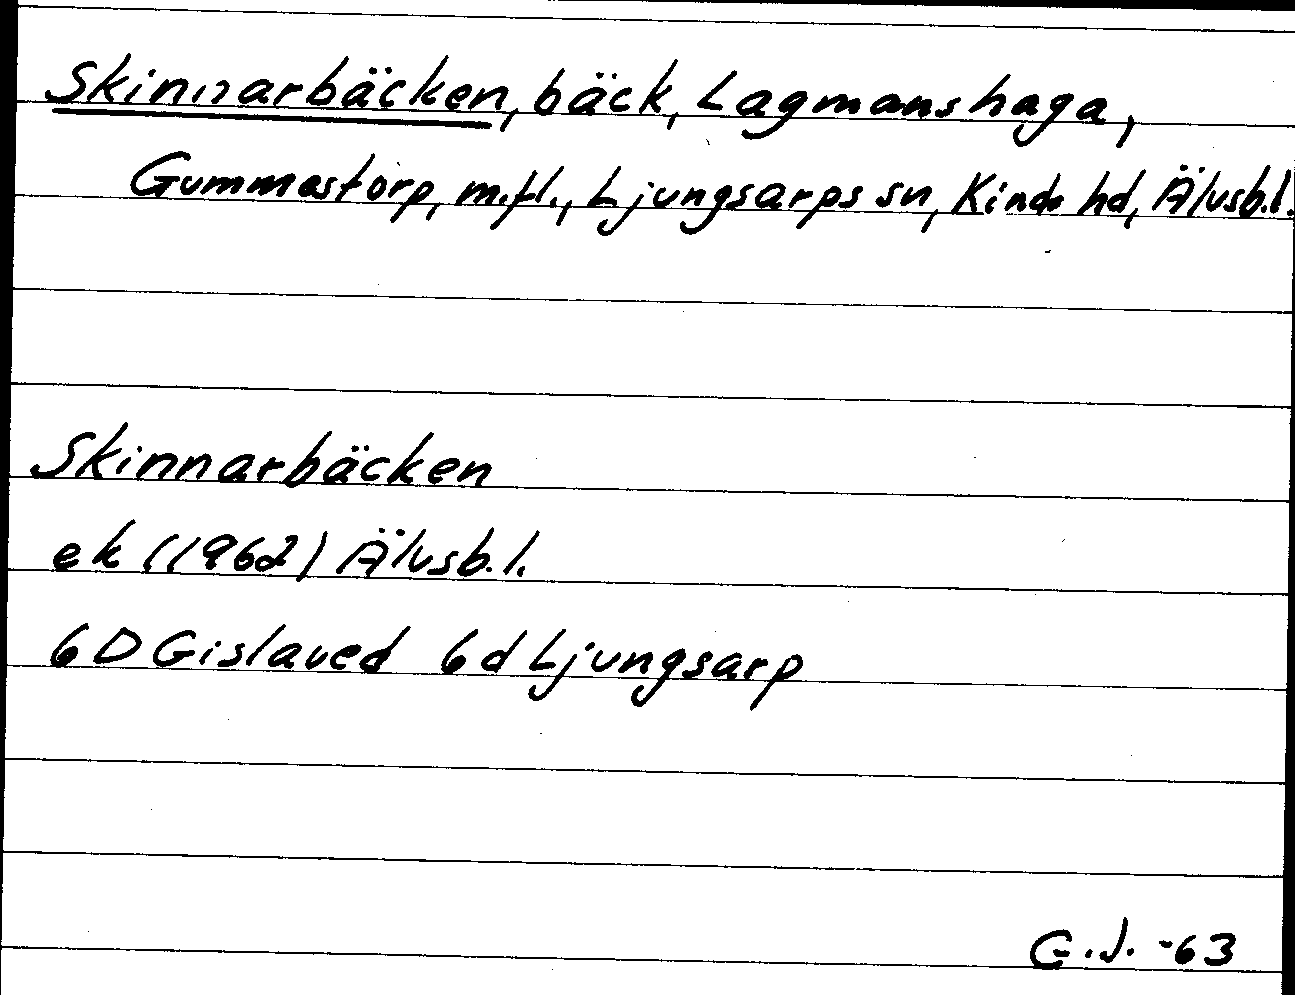 Skinnarbäcken, bäck, Lagmanshaga,
Gummestorp, m.fl., Ljungsarps sn, Kinds hd, Älvsb.l.
Skinnarbäcken
ek (1962) Älvsb.l.
6D Gislaved 6d Ljungsarp
G.J. -63